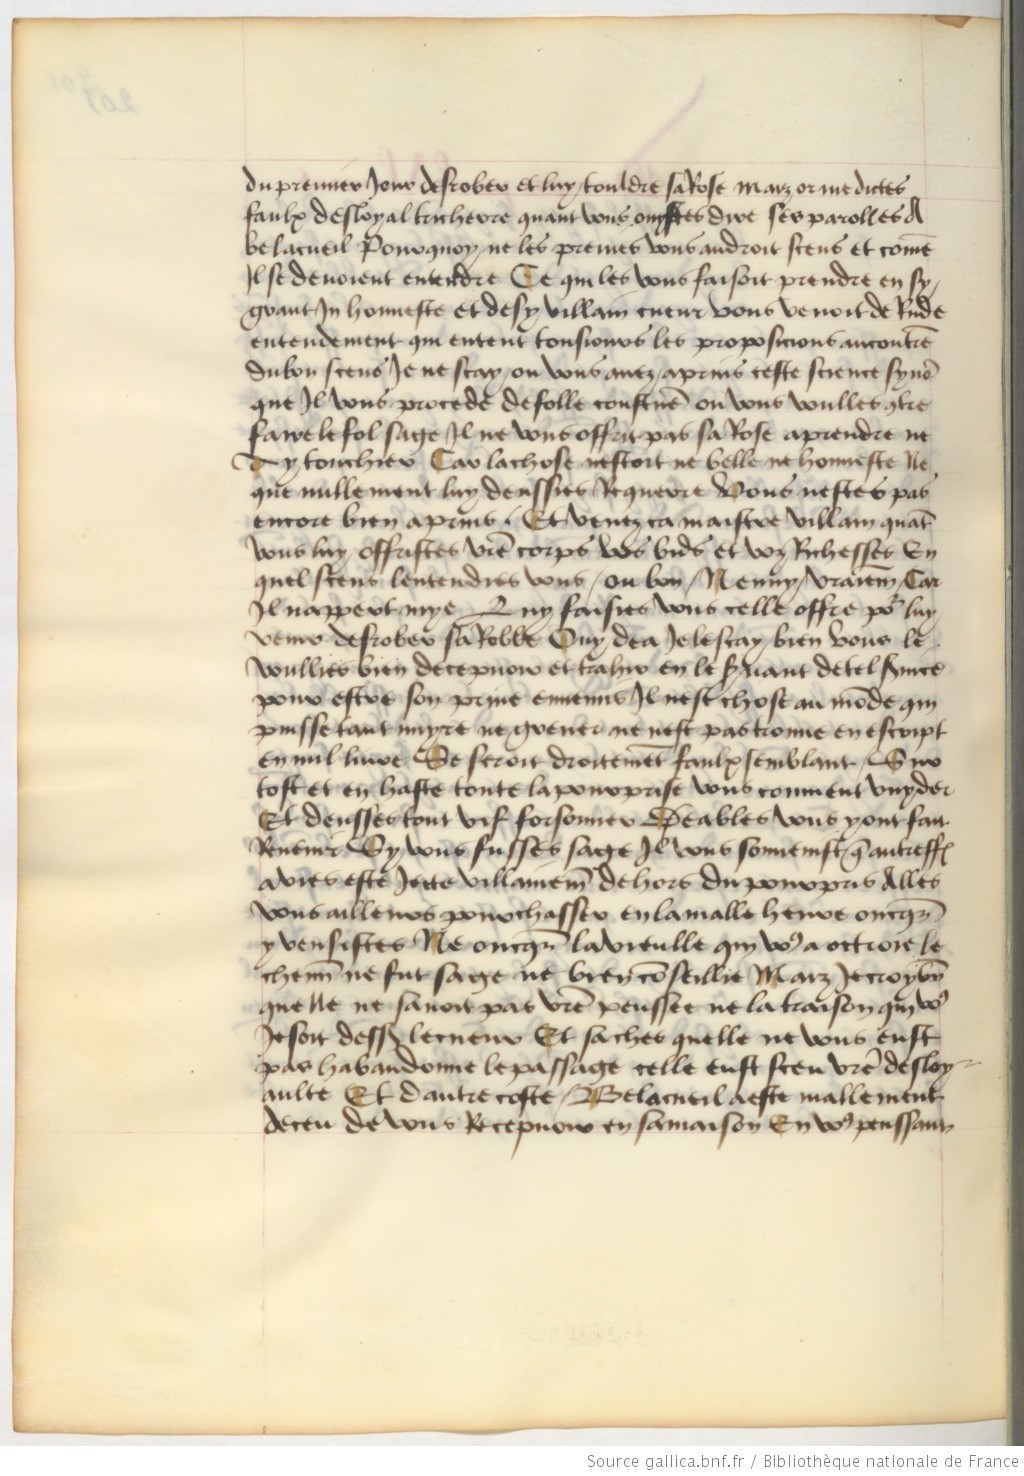 du premier Jour desrober et luy touldre sa Rose Maiz or me dictes
faulx desloyal tricheure quant vous ouystes dire ses parolles A
bel acueil Pourquoy ne les preniés vous au droit scens et come͂
Il se devoient entendre Ce qui les vous faisoit prendre en sy
grant In honneste et de sy villain cueur vous venoit de Rude
entendement qui entent tousiours les proposicions au contre͂
du bon scens Je ne scay ou vous avez aprins ceste science syno͂
que Il vous procede de folle
faire le fol sage Il ne vous offrit pas sa Rose a prendre ne
d y touchier Car la chose nestoit ne belle ne honneste Ne
que nullement luy deussies Requerre Vous nestes pas
encore bien aprins / Et venez ca maistre villain quāt
vous luy offristes vr̄e corps voz et voz Richesses En
quel scens lentendies vous / ou bon / Nenny / vraiem̄ / Car
Il nappert mye luy faisies vous celle offre por luy
venir desrober sa Robbe Ouy dea Je le scay bien Vous le
voullies bien decepvoir et trahir en le sꝑvant de tel
pour estre son prive ennemis Il nest chose au mōde qui
puisse tant nuyre ne grever ne nest pas trouvé en escript
en nul livre Se seroit droitemēt faulx semblant / Sus
tost et en haste toute la pourprise vous convient vuyder
Et deussses tout vif forsonner Deables vous y ont fait
Revenir Sy vous fusses sage Il vous souvenist q̄ autreff.
avies esté Jetté villainem̄ dehors du pourpris Alles
vous ailleurs pourchasser en la malle heure oncq̄s
y vensistes Ne oncq̄s la vieulle qui vꝰ a octroié le
chemī ne fut sage ne bien cōseillie Maiz Je croy bn̄
quelle ne savoit pas vr̄e pensee ne la traison qui vꝰ
le cueur Et saches quelle ne vous eust
pas habandonné le passage celle eust sceu vr̄e desloy-
aulté Et dautre costé / Bel acueil a esté mallement
deceu de vous Recepvoir en sa maison En vꝰ penssant